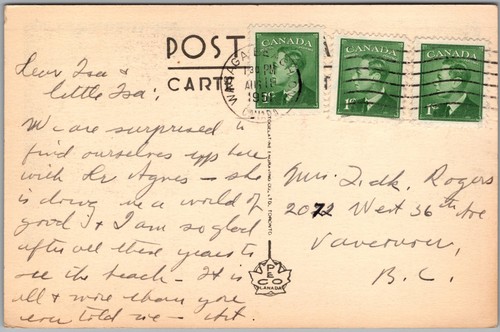 POST
CARTE
CANADA
CANADA
CANADA
1
1
WASAGA
1 30 PM
AUG 15
CANADA
Dear Isa &
little Isa;
We are surprised to
find ourselves up here
with Agnes - she
is doing us a world of
good & I am so glad
after all these years to
see the beach - It is
all & more than you
ever told me - Art.
Mrs. Dick. Rogers
2072 West 36th Ave
Vancouver,
B.C.
PECO
CANADA
ENGRAVING CO., LTD., TORONTO